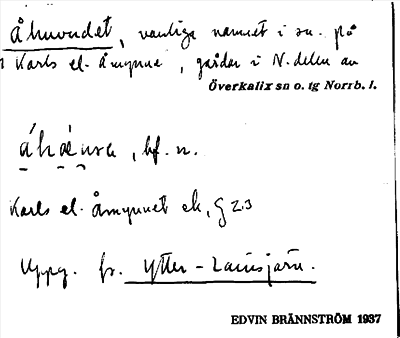 Åhuvudet, vanliga namnet i sn. på
Karls el. Åmynne, gårdar i N. delen av
Överkalix sn o. tg Norrb. l.
bf. n.
Karls el. Åmynnet ek, g 23
Uppg. fr. Ytter-Lansjärv.
EDVIN BRÄNNSTRÖM 1937